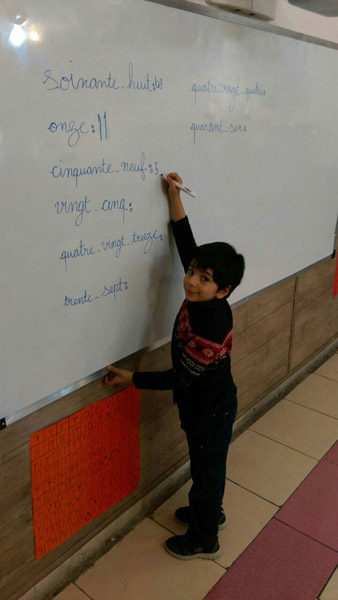 soixante-huit:68
onze:11
cinquante-neuf:5
vingt-cinq:
quatre-vingt-treize:
trente-sept:
quatre-vingt-quatre:
quarante-six: